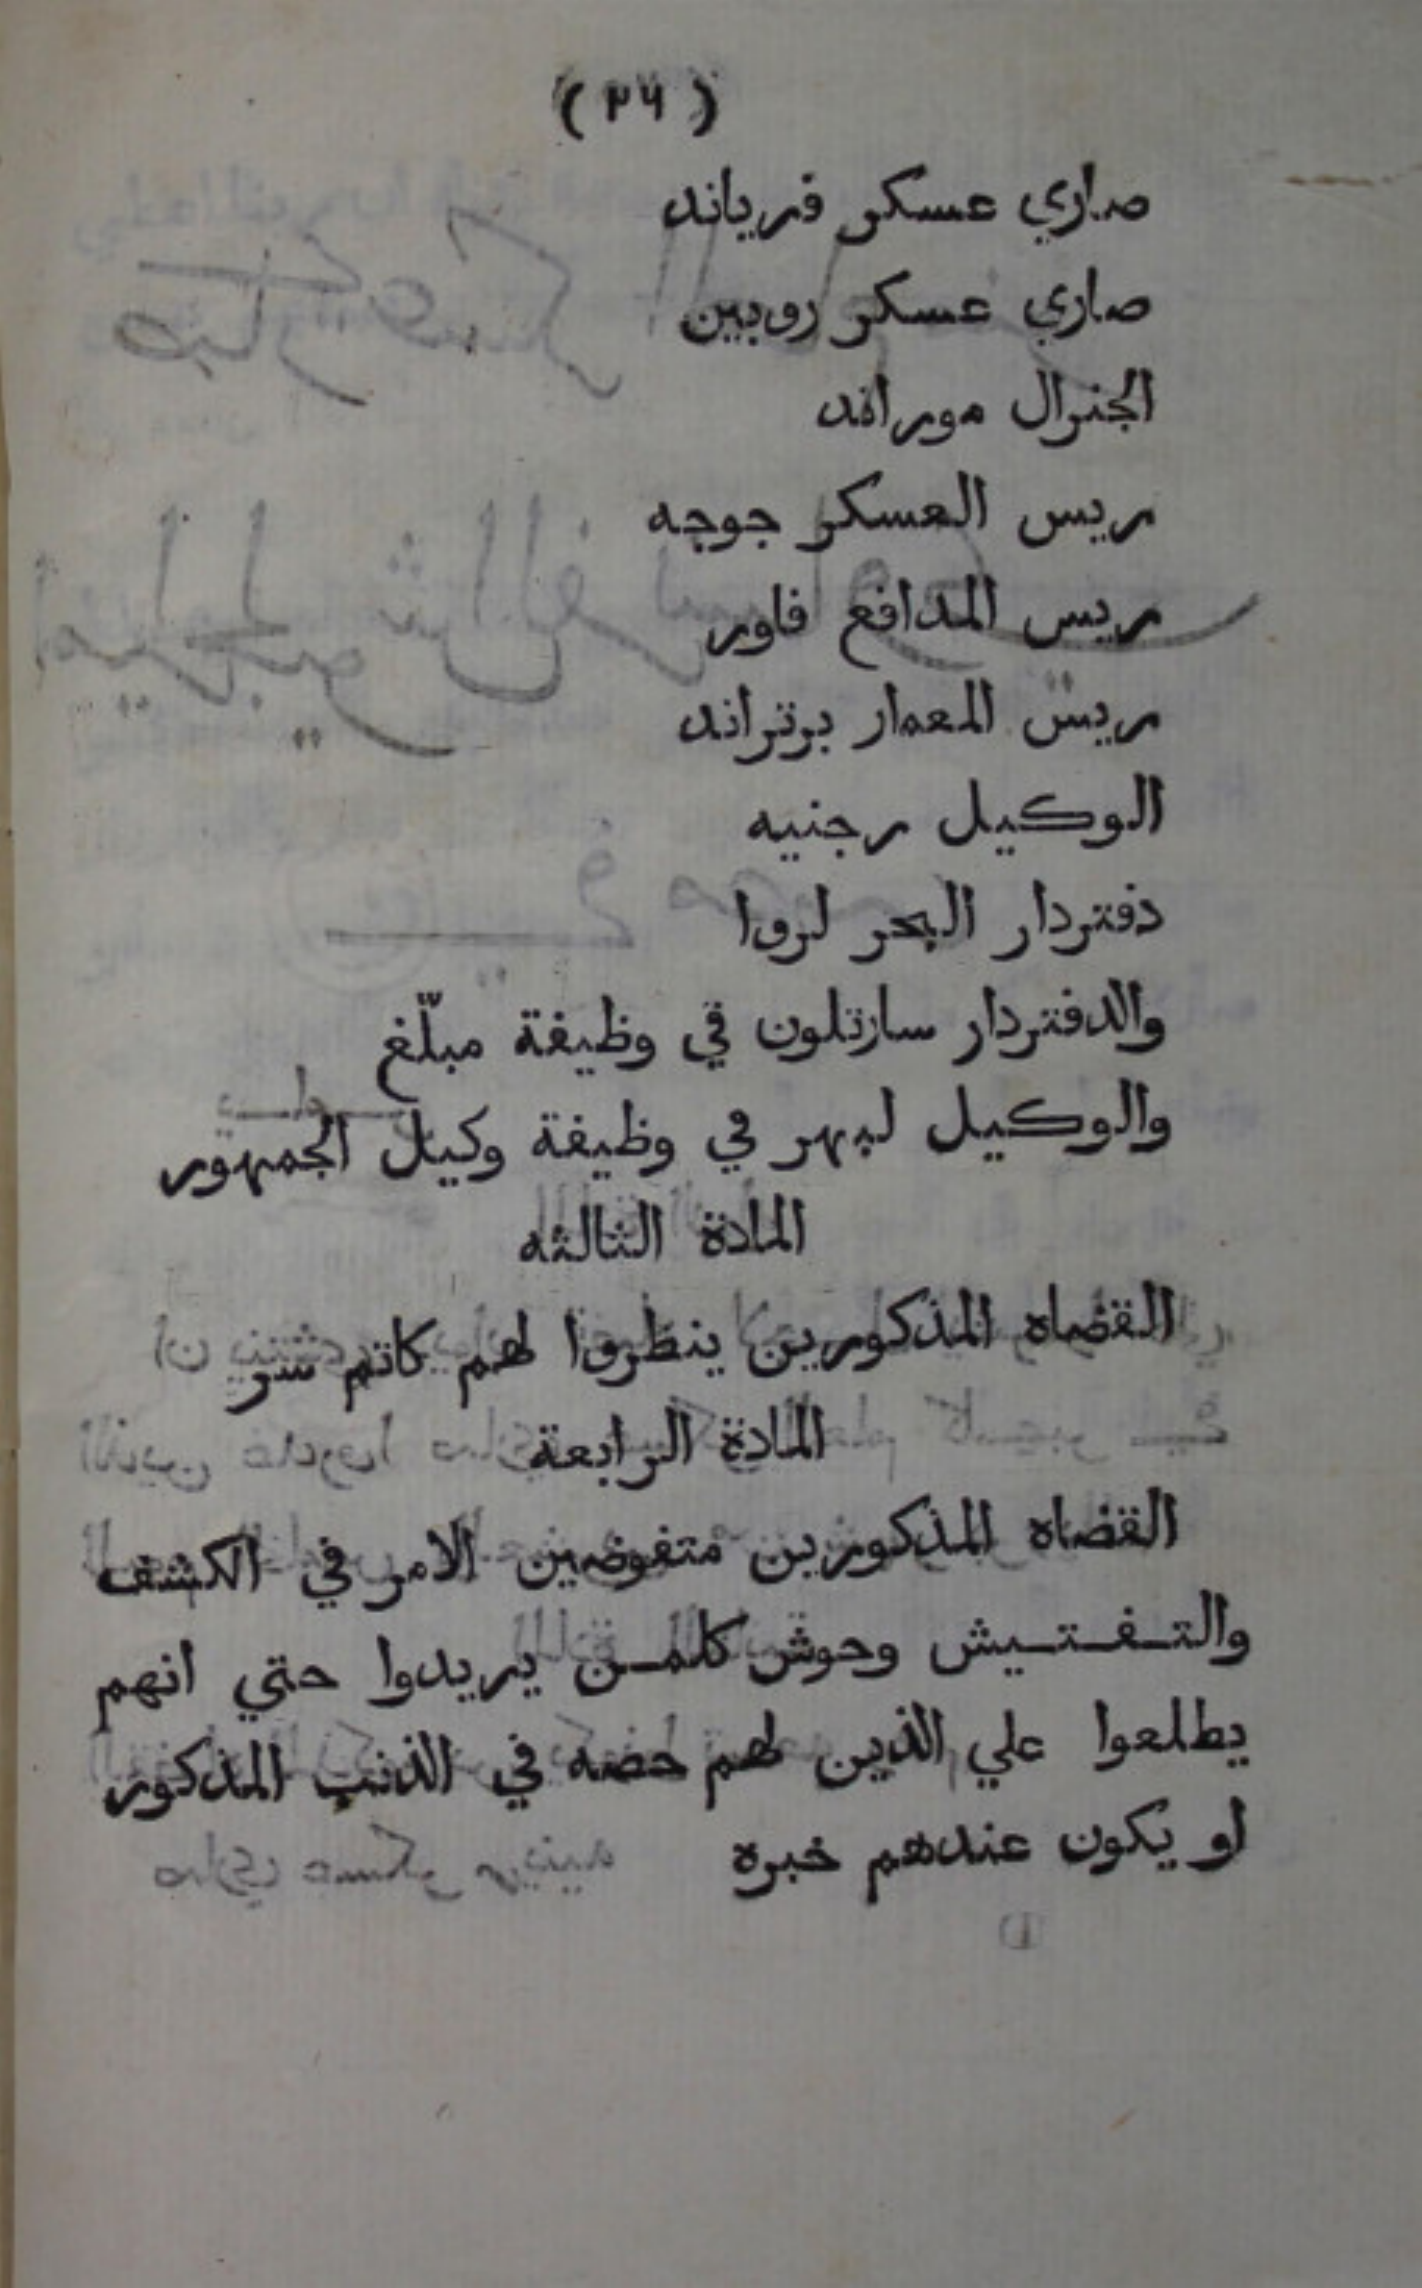 (٢٦)
صاري عسكر فرياند
صاري عسكر روبين
الجنرال موراند
ريس العسكر جوجه
ريس المدافع فاور
ريس المعمار برتراند
الوكيل رجنيه
دفتردار البحر لروا
والدفتردار سارتلون في وظيفة مبلّغ
والوكيل لپهر في وظيفة وكيل الجمهور
المادة الثالثه
القضاه المذكورين ينظروا لهم كاتم سر
المادة الرابعة
القضاه المذكورين متفوضين الامر في الكشف
والتـفـتـيش وحوش كلمـن يريدوا حتي انهم
يطلعوا علي الذين لهم حصه في الذنب المذكور
او يكون عندهم خبره